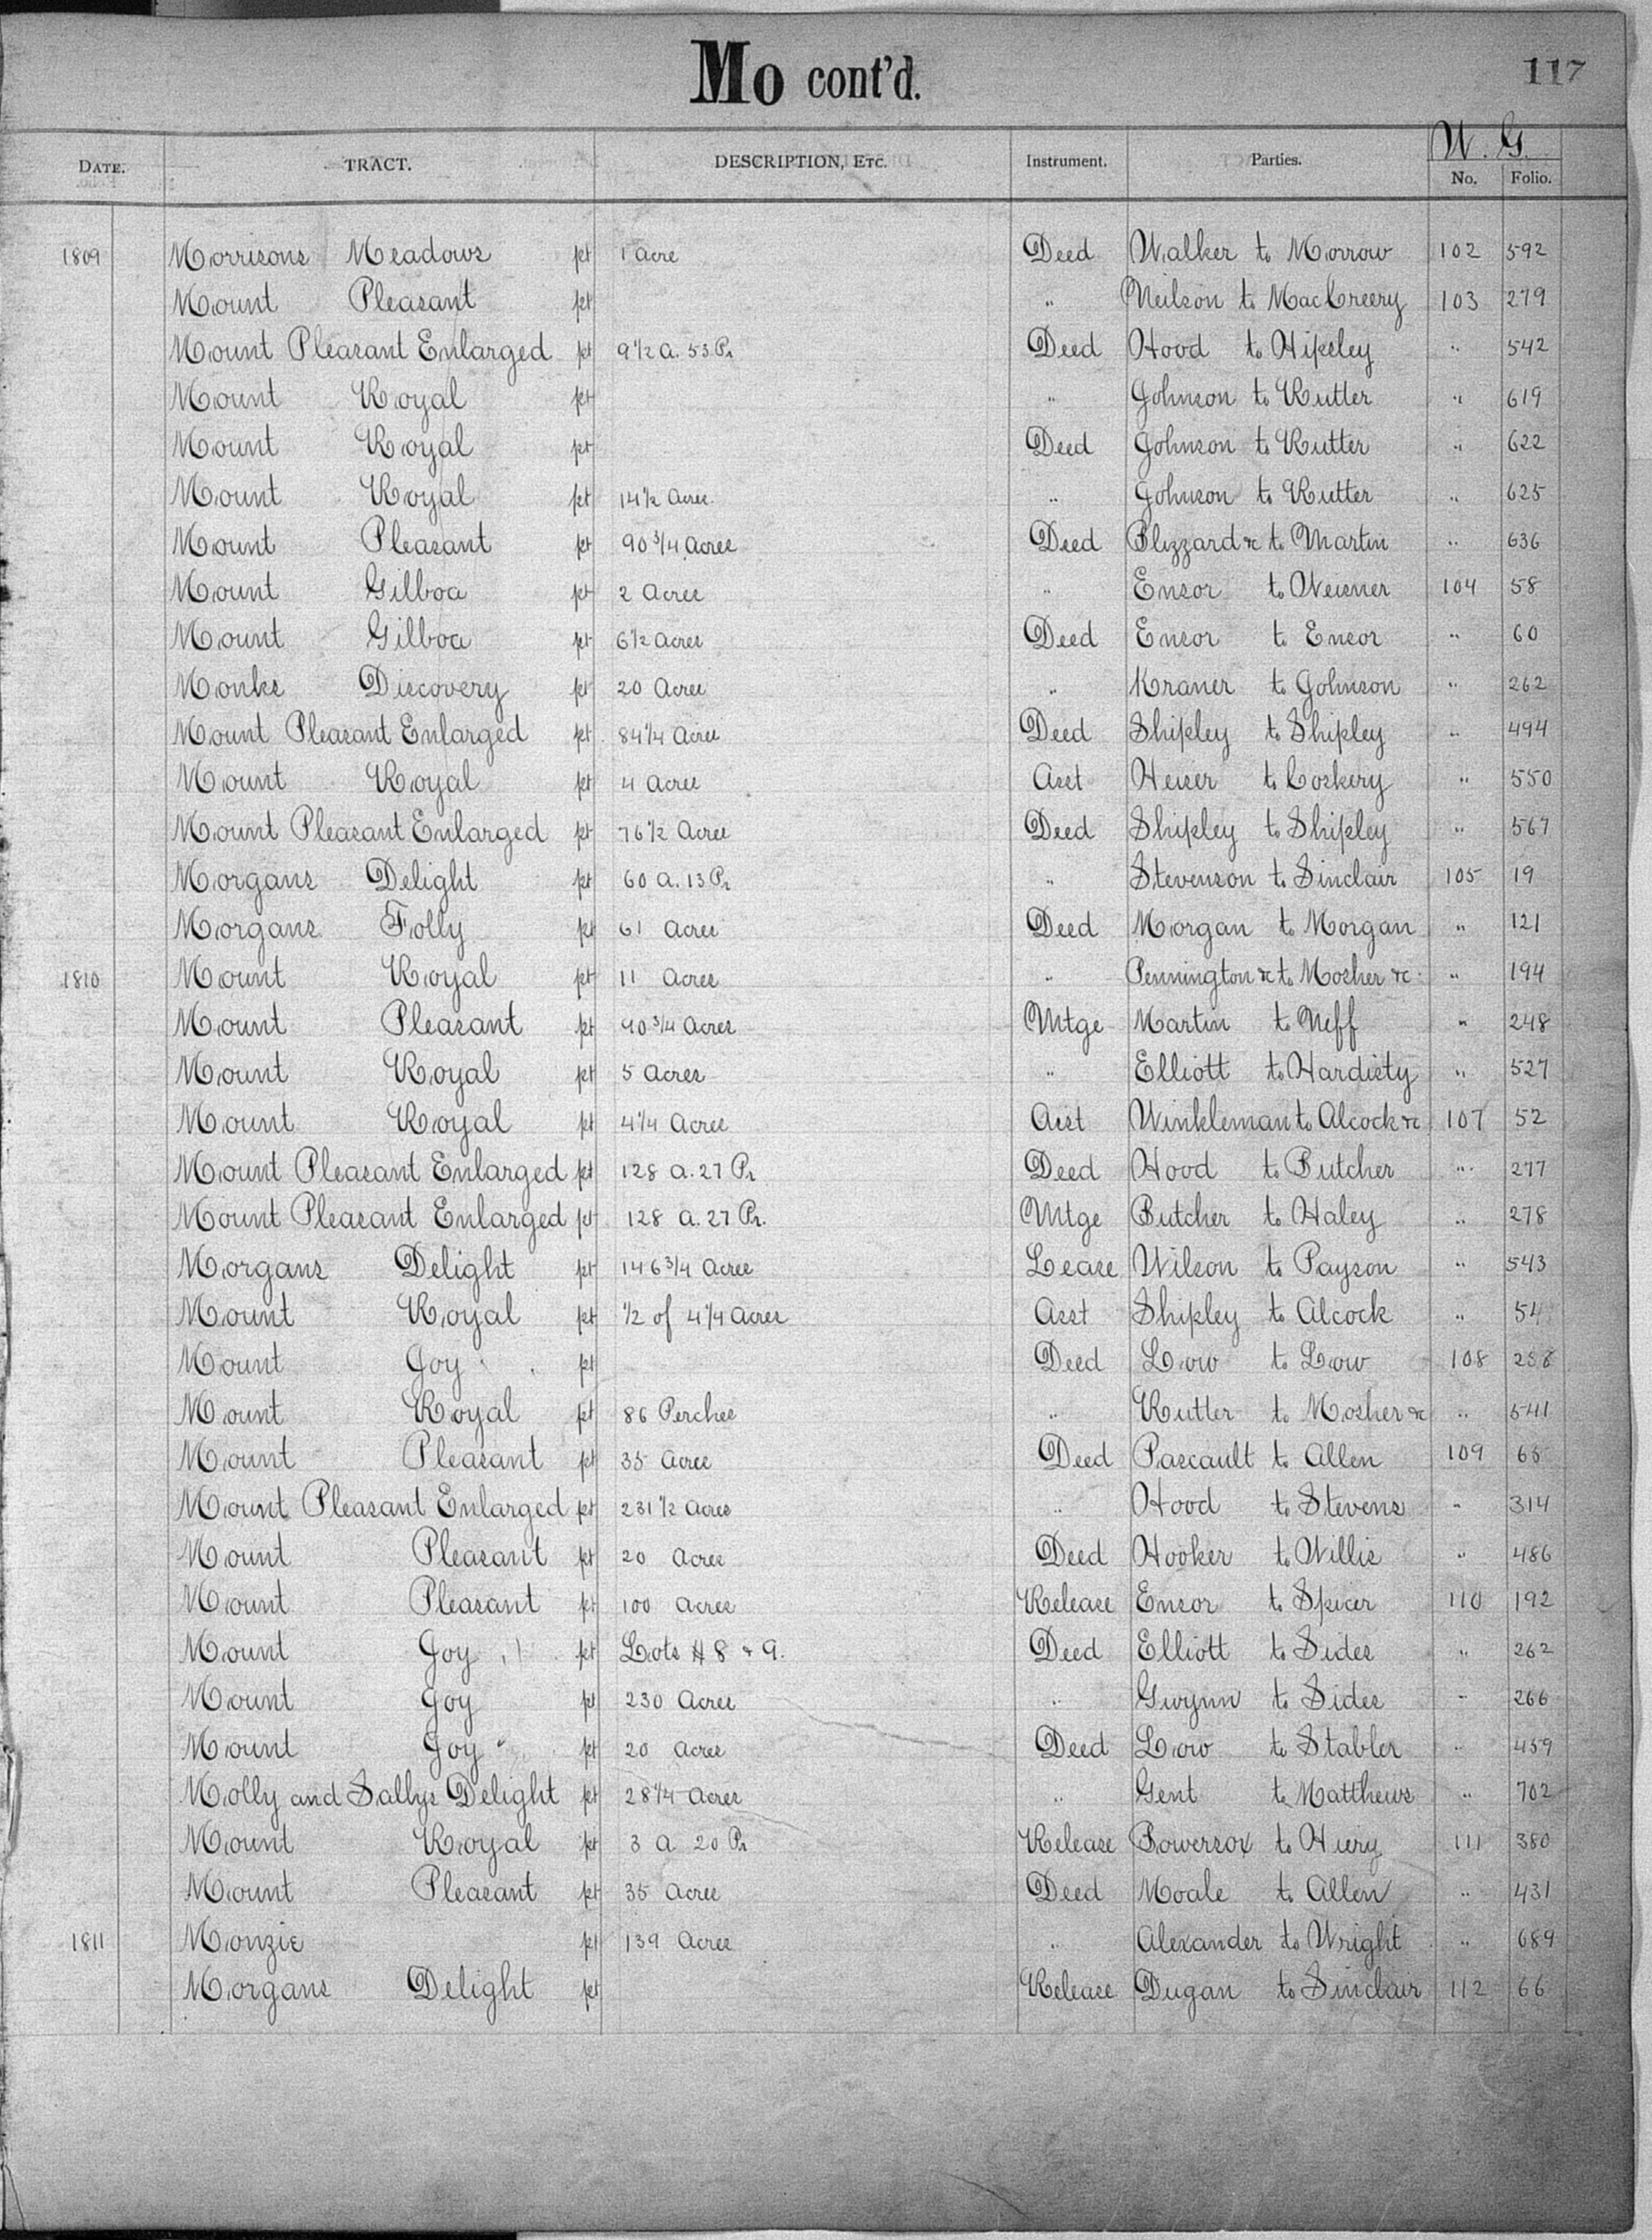 Mo cont'd. 117
W. G.
DATE. TRACT. DESCRIPTION, ETC. Instrument. Parties. No. Folio.
1809 Morrisons Meadows pt 1 Acre Deed Walker to Morrow 102 592
Mount Pleasant pt " Neilson to MacCreery 103 279
Mount Pleasant Enlarged pt 9 1/2 a. 53 Pr Deed Hood to Hipsley " 542
Mount Royal pt " Johnson to Rutter " 619
Mount Royal pt Deed Johnson to Rutter " 622
Mount Royal pt 14 1/2 Acres " Johnson to Rutter " 625
Mount Pleasant pt 90 3/4 Acres Deed Blizzard &c to Martin " 636
Mount Gilboa pt 2 Acres " Ensor to Weisner 104 58
Mount Gilboa pt 6 1/2 Acres Deed Ensor to Ensor " 60
Monks Discovery pt 20 Acres " Kraner to Johnson " 262
Mount Pleasant Enlarged pt 84 1/4 Acres Deed Shipley to Shipley " 494
Mount Royal pt 4 Acres Asst Heiser to Coskery " 550
Mount Pleasant Enlarged pt 76 1/2 Acres Deed Shipley to Shipley " 567
Morgans Delight pt 60 a. 13 Pr " Stevenson to Sinclair 105 19
Morgans Folly pt 61 Acres Deed Morgan to Morgan " 121
1810 Mount Royal pt 11 Acres " Pennington &c to Mosher &c " 194
Mount Pleasant pt 90 3/4 Acres Mtge Martin to Neff " 248
Mount Royal pt 5 Acres " Elliott to Hardisty " 527
Mount Royal pt 4 1/4 Acres Asst Winkleman to Alcock &c 107 52
Mount Pleasant Enlarged pt 128 a. 27 Pr Deed Hood to Butcher " 277
Mount Pleasant Enlarged pt 128 a. 27 Pr. Mtge Butcher to Haley " 278
Morgans Delight pt 146 3/4 Acres Lease Wilson to Payson " 543
Mount Royal pt 1/2 of 4 1/4 Acres Asst Shipley to Alcock " 54
Mount Joy pt Deed Low to Low 108
Mount Royal pt 86 Perches " Rutter to Mosher &c " 541
Mount Pleasant pt 35 Acres Deed Pascault to Allen 109 65
Mount Pleasant Enlarged pt 231 1/2 Acres " Hood to Stevens " 314
Mount Pleasant pt 20 Acres Deed Hooker to Willis " 486
Mount Pleasant pt 100 Acres Release Ensor to Spicer 110 192
Mount Joy pt Lots # 8 & 9. Deed Elliott to Sides " 262
Mount Joy pt 230 Acres " Gwynn to Sides " 266
Mount Joy pt 20 Acres Deed Low to Stabler " 459
Molly and Sallys Delight pt 28 1/4 Acres " Gent to Matthews " 702
Mount Royal pt 3 a 20 Pr Release Bowersox to Hiery 111 380
Mount Pleasant pt 35 Acres Deed Moale to Allen " 431
1811 Monzie pt 139 Acres " Alexander to Wright " 689
Morgans Delight pt Release Dugan to Sinclair 112 66